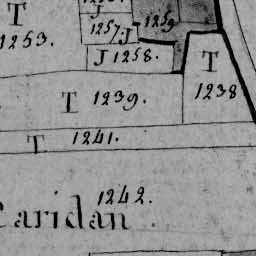 T
J
1253.
1257. J
1259
J 1258.
T
1238
T 1239.
T 1241.
1242.
Caridan